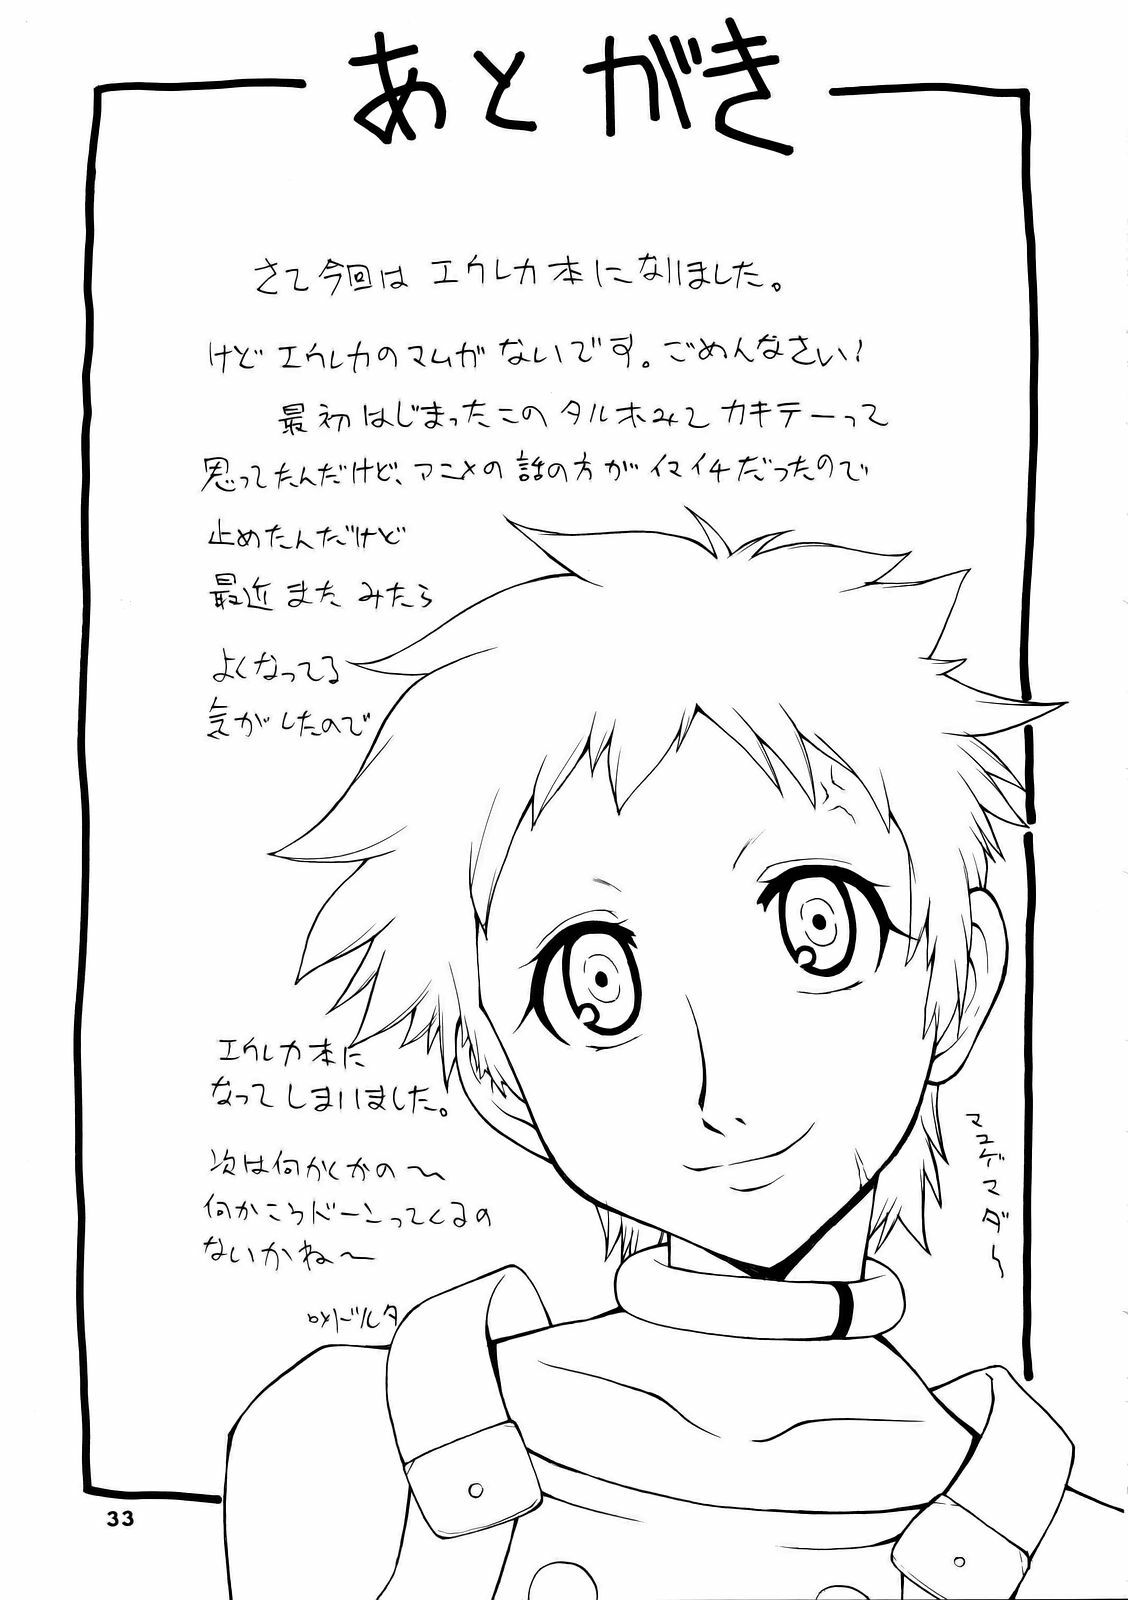 あとがき
さて今回は エウレカ本になりました。
けど エウレカのマムガ ないです。ごめんなさい!
最初はじまったこの タルホみて カキテーって
思ってたんだけど、アニメの 話の方が イマイチだったので
止めたんだけど
最近 また みたら
よくなってる
気がしたので
エウレカ本に
なってしまいました。
次は何かくかの〜
何かこうドーンってくるの
ないかね〜
マユゲマダ〜
33